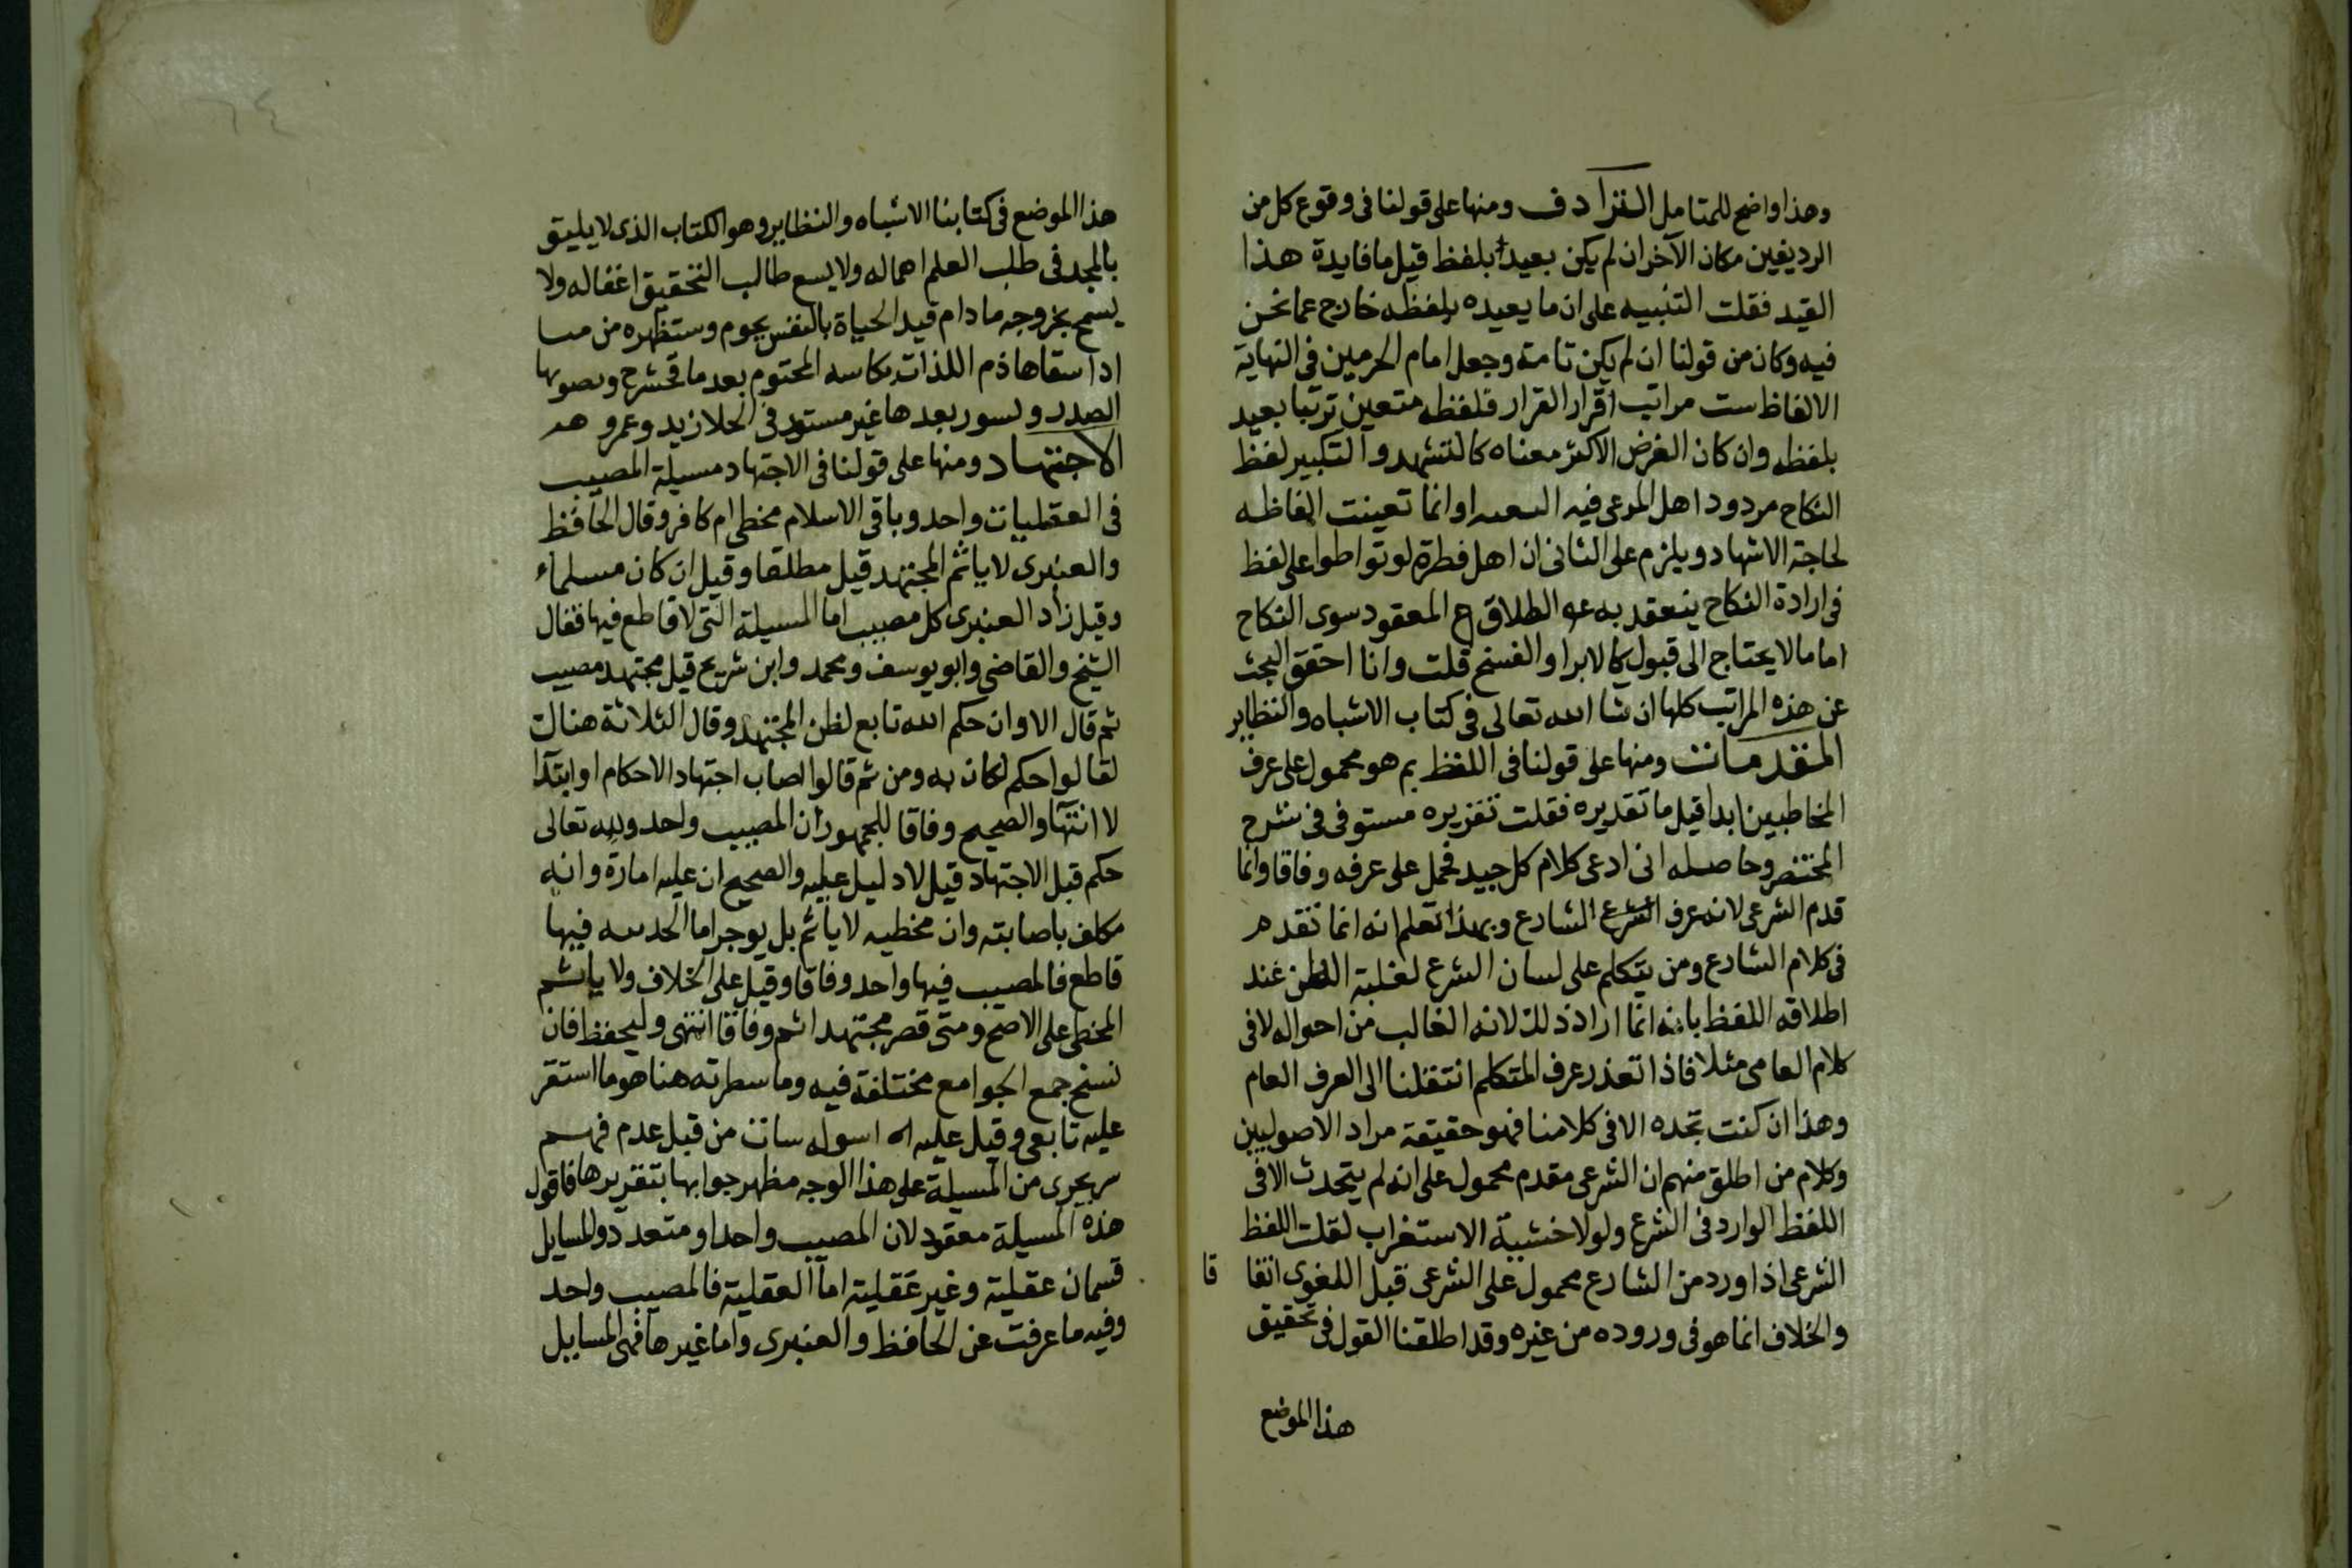 وهذا واضح للمتامل الترادف ومنها على قولنا فى وقوع كل من
الرديفين مكان الآخر ان لم يكن بعيدا بلفظ قيل ما فايدة هذا
القيد فقلت التنبيه على ان ما يعيده بلفظه خارج عما نحن
فيه وكان من قولنا ان لم يكن تامة وجعل امام الحرمين فى النهاية
الالفاظ ست مراتب اقرار القرار فلفظه متعين ترتبا بعيد
بلفظه وان كان الغرض الاكثر معناه كالتشهد والتكبير لفظ
النكاح مردود اهل المرعى فيه اوانما تعينت الفاظه
لحاجة الاشهاد ويلزم على الثانى ان اهل فطرة لو تواطوا على لفظ
فى ارادة النكاح ينعقد به الطلاق المعقود سوى النكاح
اما ما لا يحتاج الى قبول كالابرا والفسخ قلت وانا احقق البحث
عن هذه المراتب كلها ان شا الله تعالى فى كتاب الاشباه والنظاير
المتقدمات ومنها على قولنا فى اللفظ بم هو محمول على عرف
المخاطبين ابدا قيل ما تقديره فقلت تقريره مستوفى فى شرح
المختصر وحاصله انى ادعى كلام كل جيد فحمل على عرفه وفاقا وانما
قدم الشرعى لانه عرف الشرع الشارع وبهذا تعلم انه انما تقدم
فى كلام الشارع ومن يتكلم على لسان الشرع لغلبة الظن عند
اطلاقه اللفظ بانه انما اراد ذلك لانه الغالب من احواله لا فى
كلام العامى مثلا فاذا تعذر عرف المتكلم انتقلنا الى العرف العام
وهذا ان كنت تجده الا فى كلامنا فهو حقيقة مراد الاصوليين
وكلام من اطلق منهم ان الشرعى مقدم محمول على انه لم يتحدث الا فى
اللفظ الوارد فى الشرع ولولا خشية الاستغراب لقلت اللفظ
الشرعى اذا ورد من الشارع محمول على الشرعى قبل اللغوى اتفا قا
والخلاف انما هو فى وروده من غيره وقد اطلقنا القول فى تحقيق
هذا الموضع
هذا الموضع فى كتابنا الاشباه والنظاير وهو الكتاب الذى لا يليق
بالمجد فى طلب العلم اهماله ولا يسع طالب التحقيق اغفاله ولا
يسمح بخروجه ما دام قيد الحياة بالنفس يحوم وستظهره من
اذا سقا هاذم اللذات بكاسه المحتوم بعد ما
الصدر بعدها غير مستود فى الحلا زيد وعمرو
الاجتهاد ومنها على قولنا فى الاجتهاد مسيلة المصيب
فى العقليات واحد وباقى الاسلام مخطى ام كافر وقال الحافظ
والعنبرى لا ياثم المجتهد قيل مطلقا وقيل ان كان مسلما
وقيل زاد العنبرى كل مصيب اما المسيلة التى لا قاطع فيها فقال
الشيخ والقاضى وابو يوسف ومحمد وابن شريح قيل مجتهد مصيب
ثم قال الاوان حكم الله تابع لظن المجتهد وقال الثلاثة هنالت
لقالوا حكم لكان به ومن ثم قالوا اصاب اجتهاد الاحكام او ابتدآ
لا انتهآ والصحيح وفاقا للجمهور ان المصيب واحد ولله تعالى
حكم قبل الاجتهاد قيل لا دليل عليه والصحيح ان عليه امارة وانه
مكلف باصابته وان مخطيه لا ياثم بل يوجر اما فيها
قاطع فالمصيب فيها واحد وفاقا وقيل على الخلاف ولا ياثم
المخطى على الاصح ومتى قصر مجتهد اثم وفاقا انتهى وليحفظ فان
نسخ جمع الجوامع مختلفة فيه وما سطرته هنا هو ما استقر
عليه تابعى وقيل عليه من قبل عدم فهم
من المسيلة على هذا الوجه مظهر جوابها بتقريرها فاقول
هذه المسيلة معقود لان المصيب واحد او متعدد والمسايل
قسمان عقلية وغير عقلية اما العقلية فالمصيب واحد
وفيه ما عرفت عن الحافظ والعنبرى واما غيرها فهى المسايل